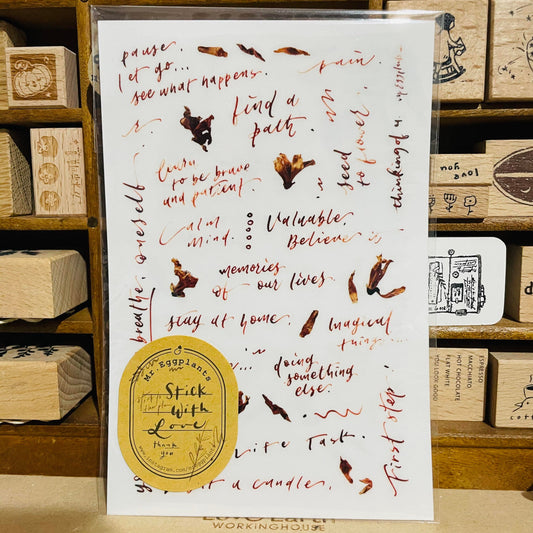 pause.
let go...
see what happens.
pain.
find a
path.
seed
to flower.
thinking of u.
learn
to be brave
and patient.
oneself
breathe.
Calm
Mind.
Valuable.
Believe is
memories
of our lives.
stay at home.
magical
thing...
doing
something
else.
First step.
Task.
a candles.
Mr. Eggplants
Stick
With
Love
thank
you
love you
ESPRESSO
MACCHIATO
HOT CHOCOLATE
FLAT WHITE
YOU LOOK GOOD
WORKINGHOUSE